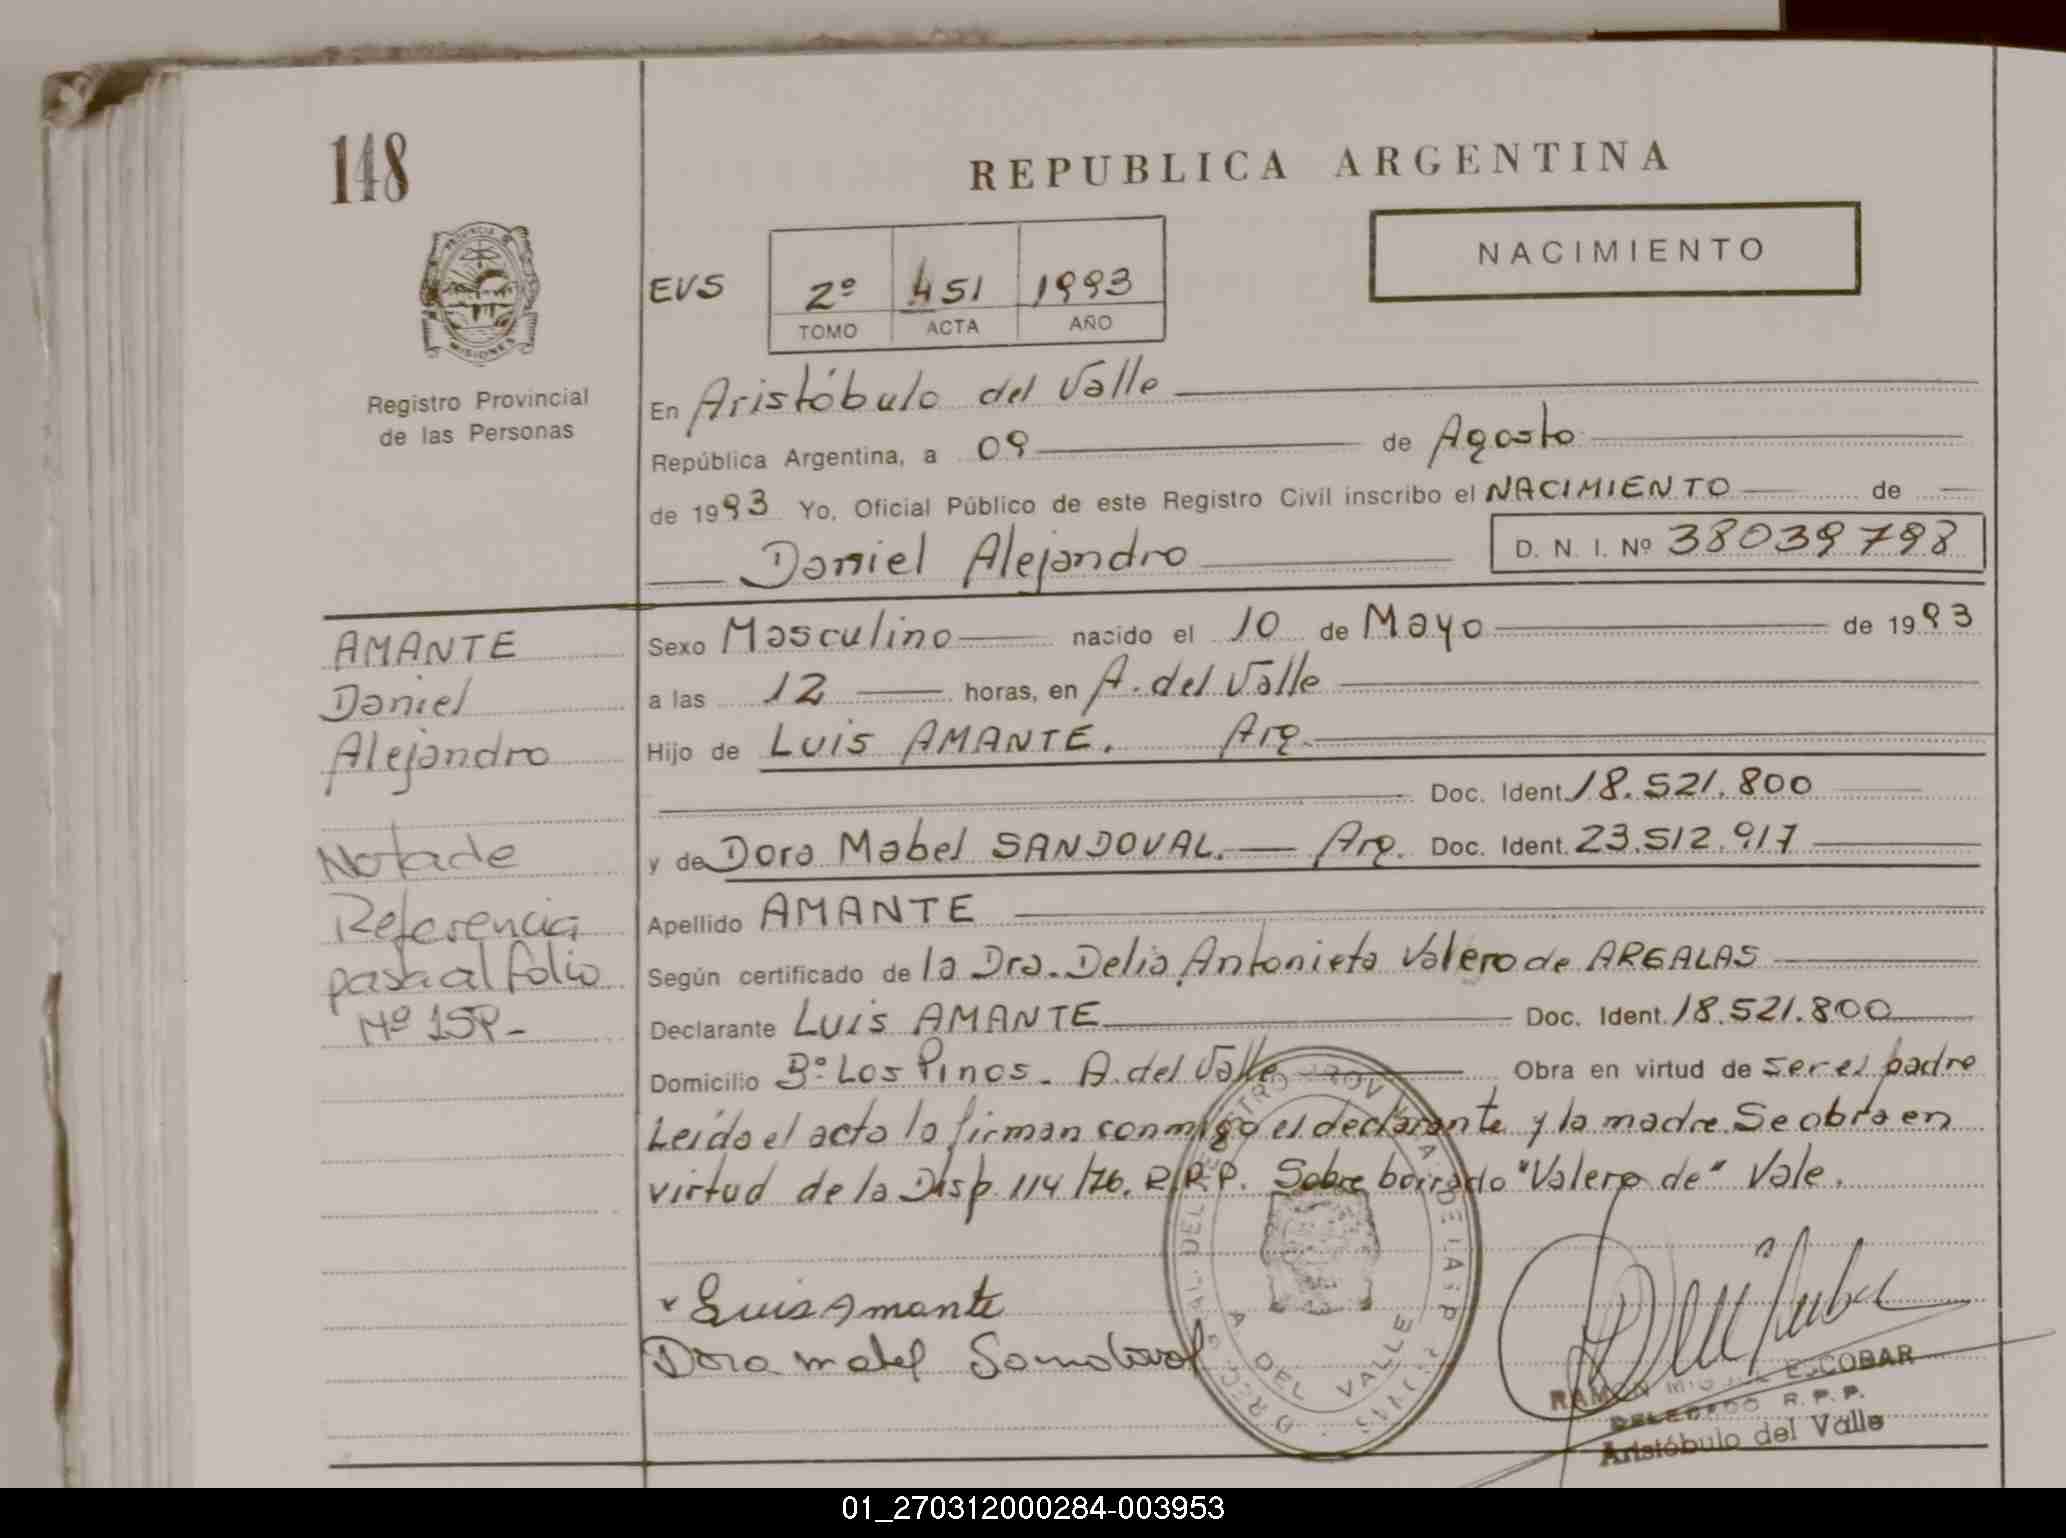 148
REPUBLICA ARGENTINA
NACIMIENTO
PROVINCIA DE
MISIONES
Registro Provincial
de las Personas
EVS 2º 451 1993
TOMO ACTA AÑO
En Aristóbulo del Valle
República Argentina, a 09 de Agosto
de 1993 Yo, Oficial Público de este Registro Civil inscribo el NACIMIENTO de
Daniel Alejandro D. N. I. Nº 38039798
AMANTE
Daniel
Alejandro
Nota de
Referencia
pasa al folio
Nº 159-
Sexo Masculino nacido el 10 de Mayo de 1993
a las 12 horas, en A. del Valle
Hijo de Luis AMANTE. Arg.
Doc. Ident. 18.521.800
y de Dora Mabel SANDOVAL. Arg. Doc. Ident. 23.512.917
Apellido AMANTE
Según certificado de la Dra. Delia Antonieta Valero de ARGALAS
Declarante Luis AMANTE Doc. Ident. 18.521.800
Domicilio Bº Los Pinos. A. del Valle Obra en virtud de ser el padre
Leída el acta la firman conmigo el declarante y la madre. Se obra en
virtud de la Disp. 114/76. R.R.P. Sobre borrado "Valero de" Vale.
Luis Amante
Dora mabel Sandoval
A DEL VALLE
RAMON MIGUEL ESCOBAR
DELEGADO R. P. P.
Aristóbulo del Valle
01_270312000284-003953